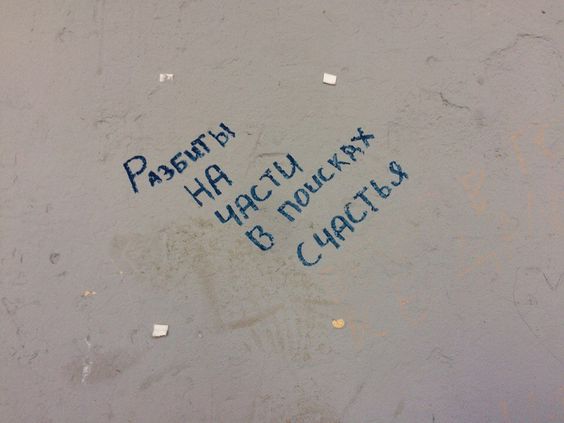 Разбиты
на
части
в поисках
счастья